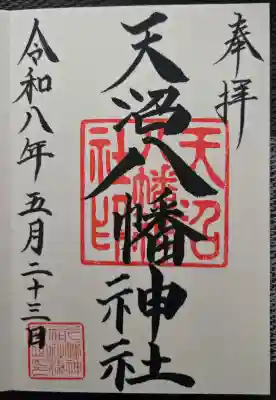 奉拝
天沼八幡神社
天沼八幡社印
令和八年五月二十三日